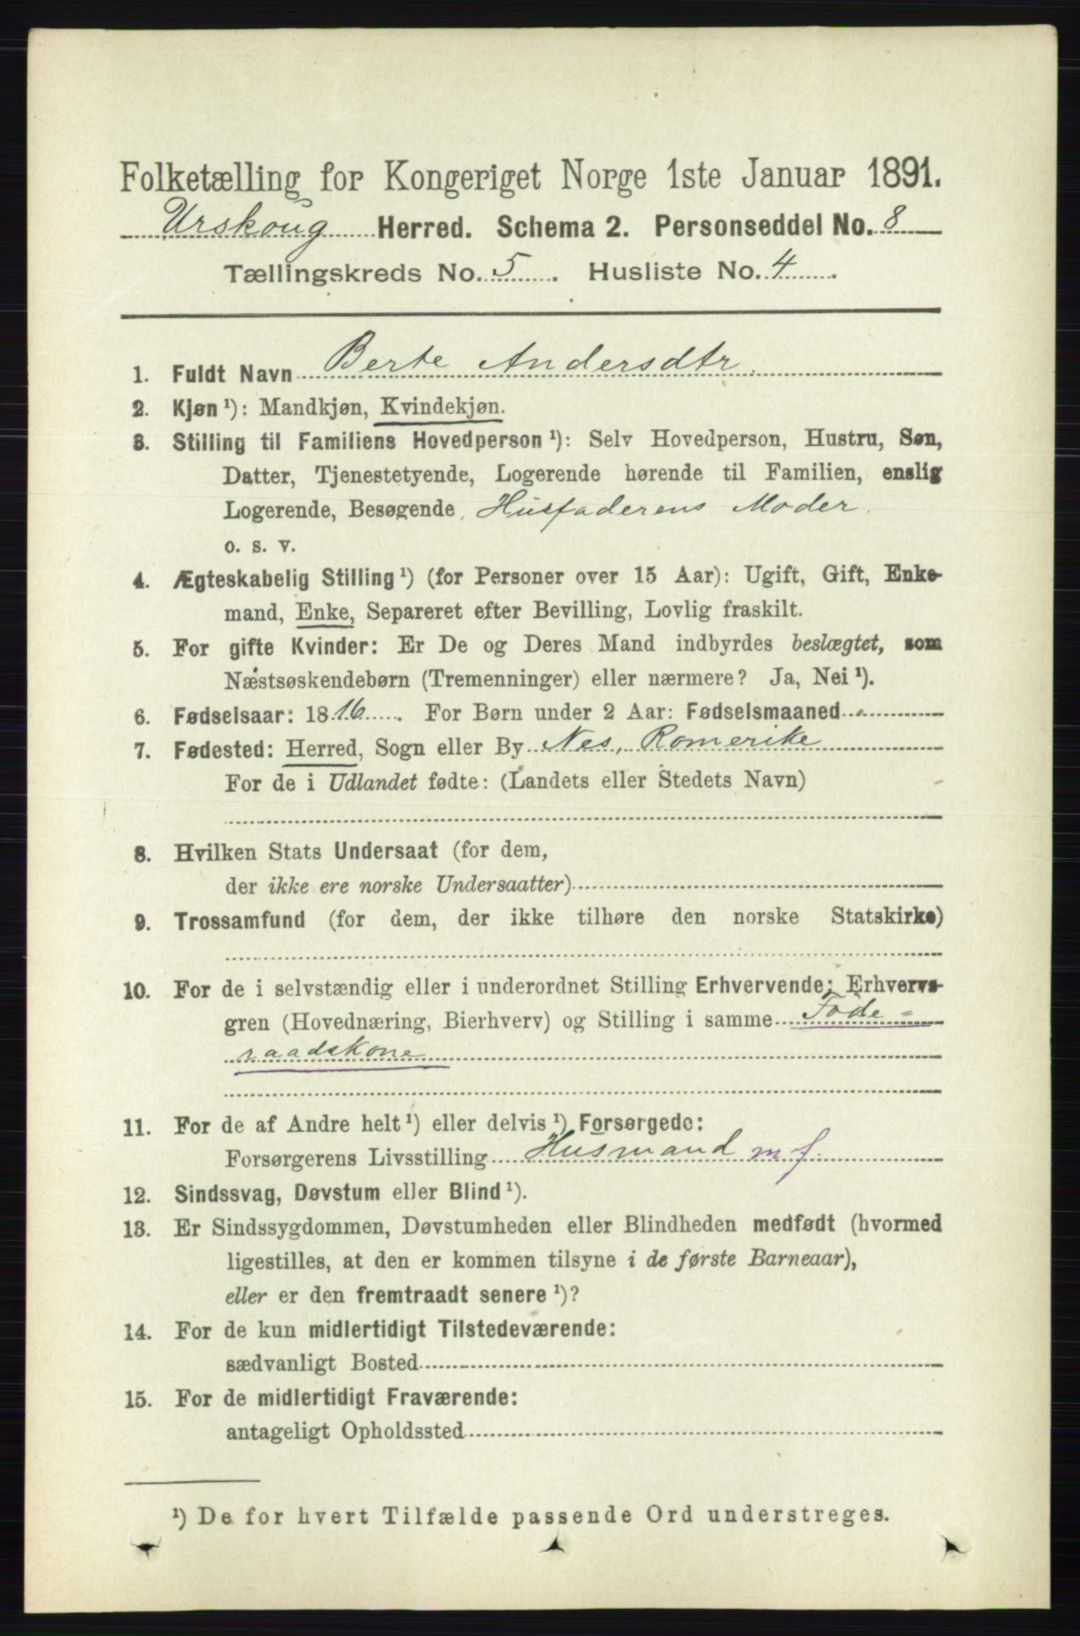 Folketælling for Kongeriget Norge 1ste Januar 1891.
Urskoug Herred. Schema 2. Personseddel No. 8
Tællingskreds No. 5. Husliste No. 4.
1. Fuldt Navn Berte Andersdtr.
2. Kjøn ¹): Mandkjøn, Kvindekjøn.
3. Stilling til Familiens Hovedperson ¹): Selv Hovedperson, Hustru, Søn,
Datter, Tjenestetyende, Logerende hørende til Familien, enslig
Logerende, Besøgende Husfaderens Moder.
o. s. v.
4. Ægteskabelig Stilling ¹) (for Personer over 15 Aar): Ugift, Gift, Enke-
mand, Enke, Separeret efter Bevilling, Lovlig fraskilt.
5. For gifte Kvinder: Er De og Deres Mand indbyrdes beslægtet, som
Næstsøskendebørn (Tremenninger) eller nærmere? Ja, Nei ¹).
6. Fødselsaar: 1816. For Børn under 2 Aar: Fødselsmaaned
7. Fødested: Herred, Sogn eller By Nes, Romerike
For de i Udlandet fødte: (Landets eller Stedets Navn)
8. Hvilken Stats Undersaat (for dem,
der ikke ere norske Undersaatter)
9. Trossamfund (for dem, der ikke tilhøre den norske Statskirke)
10. For de i selvstændig eller i underordnet Stilling Erhvervende: Erhvervs-
gren (Hovednæring, Bierhverv) og Stilling i samme Føde-
raadskone
11. For de af Andre helt ¹) eller delvis ¹) Forsørgede:
Forsørgerens Livsstilling Husmand m f.
12. Sindssvag, Døvstum eller Blind ¹).
13. Er Sindssygdommen, Døvstumheden eller Blindheden medfødt (hvormed
ligestilles, at den er kommen tilsyne i de første Barneaar),
eller er den fremtraadt senere ¹)?
14. For de kun midlertidigt Tilstedeværende:
sædvanligt Bosted
15. For de midlertidigt Fraværende:
antageligt Opholdssted
¹) De for hvert Tilfælde passende Ord understreges.